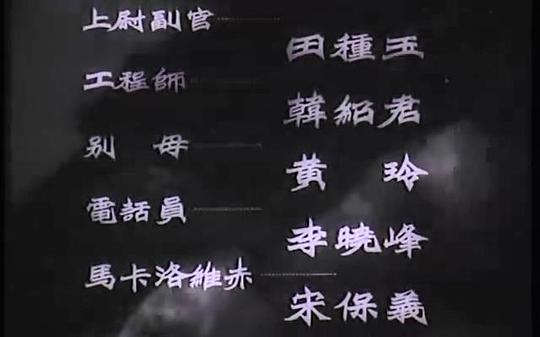 上尉副官
田種玉
工程師
韓紹君
別母
黃玲
電話員
李曉峰
馬卡洛維赤
宋保義